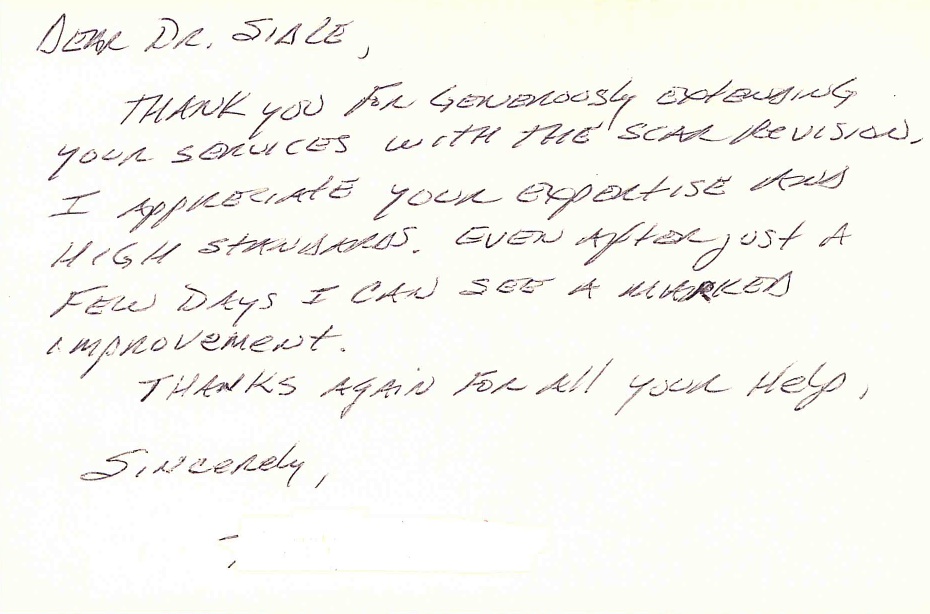 Dear Dr. Siale,
Thank you for generously extending
your services with the scar revision.
I appreciate your expertise and
high standards. Even after just a
few days I can see a marked
improvement.
Thanks again for all your help,
Sincerely,